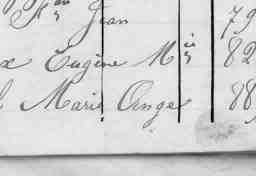 Jean 79
x Eugène Mie 82
Marie Ange 88